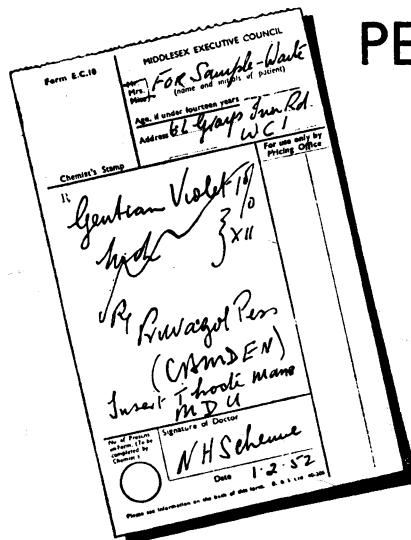 PE
Form E.C.10
MIDDLESEX EXECUTIVE COUNCIL
Mr.
Mrs.
Miss
FOR Sample-Waite
(name and initials of patient)
Age, if under fourteen years
Address 62 Grays Inn Rd.
WC1
Chemist's Stamp
For use only by
Pricing Office
R
Gentian Violet 1%
XII
Pruvagol Pess
(CAMDEN)
Insert T hocte mane
MDU
No. of Prescns.
on Form. (To be
completed by
Chemist)
Signature of Doctor
NHScheme
Date 1·2·52
Please see information on the back of this form.